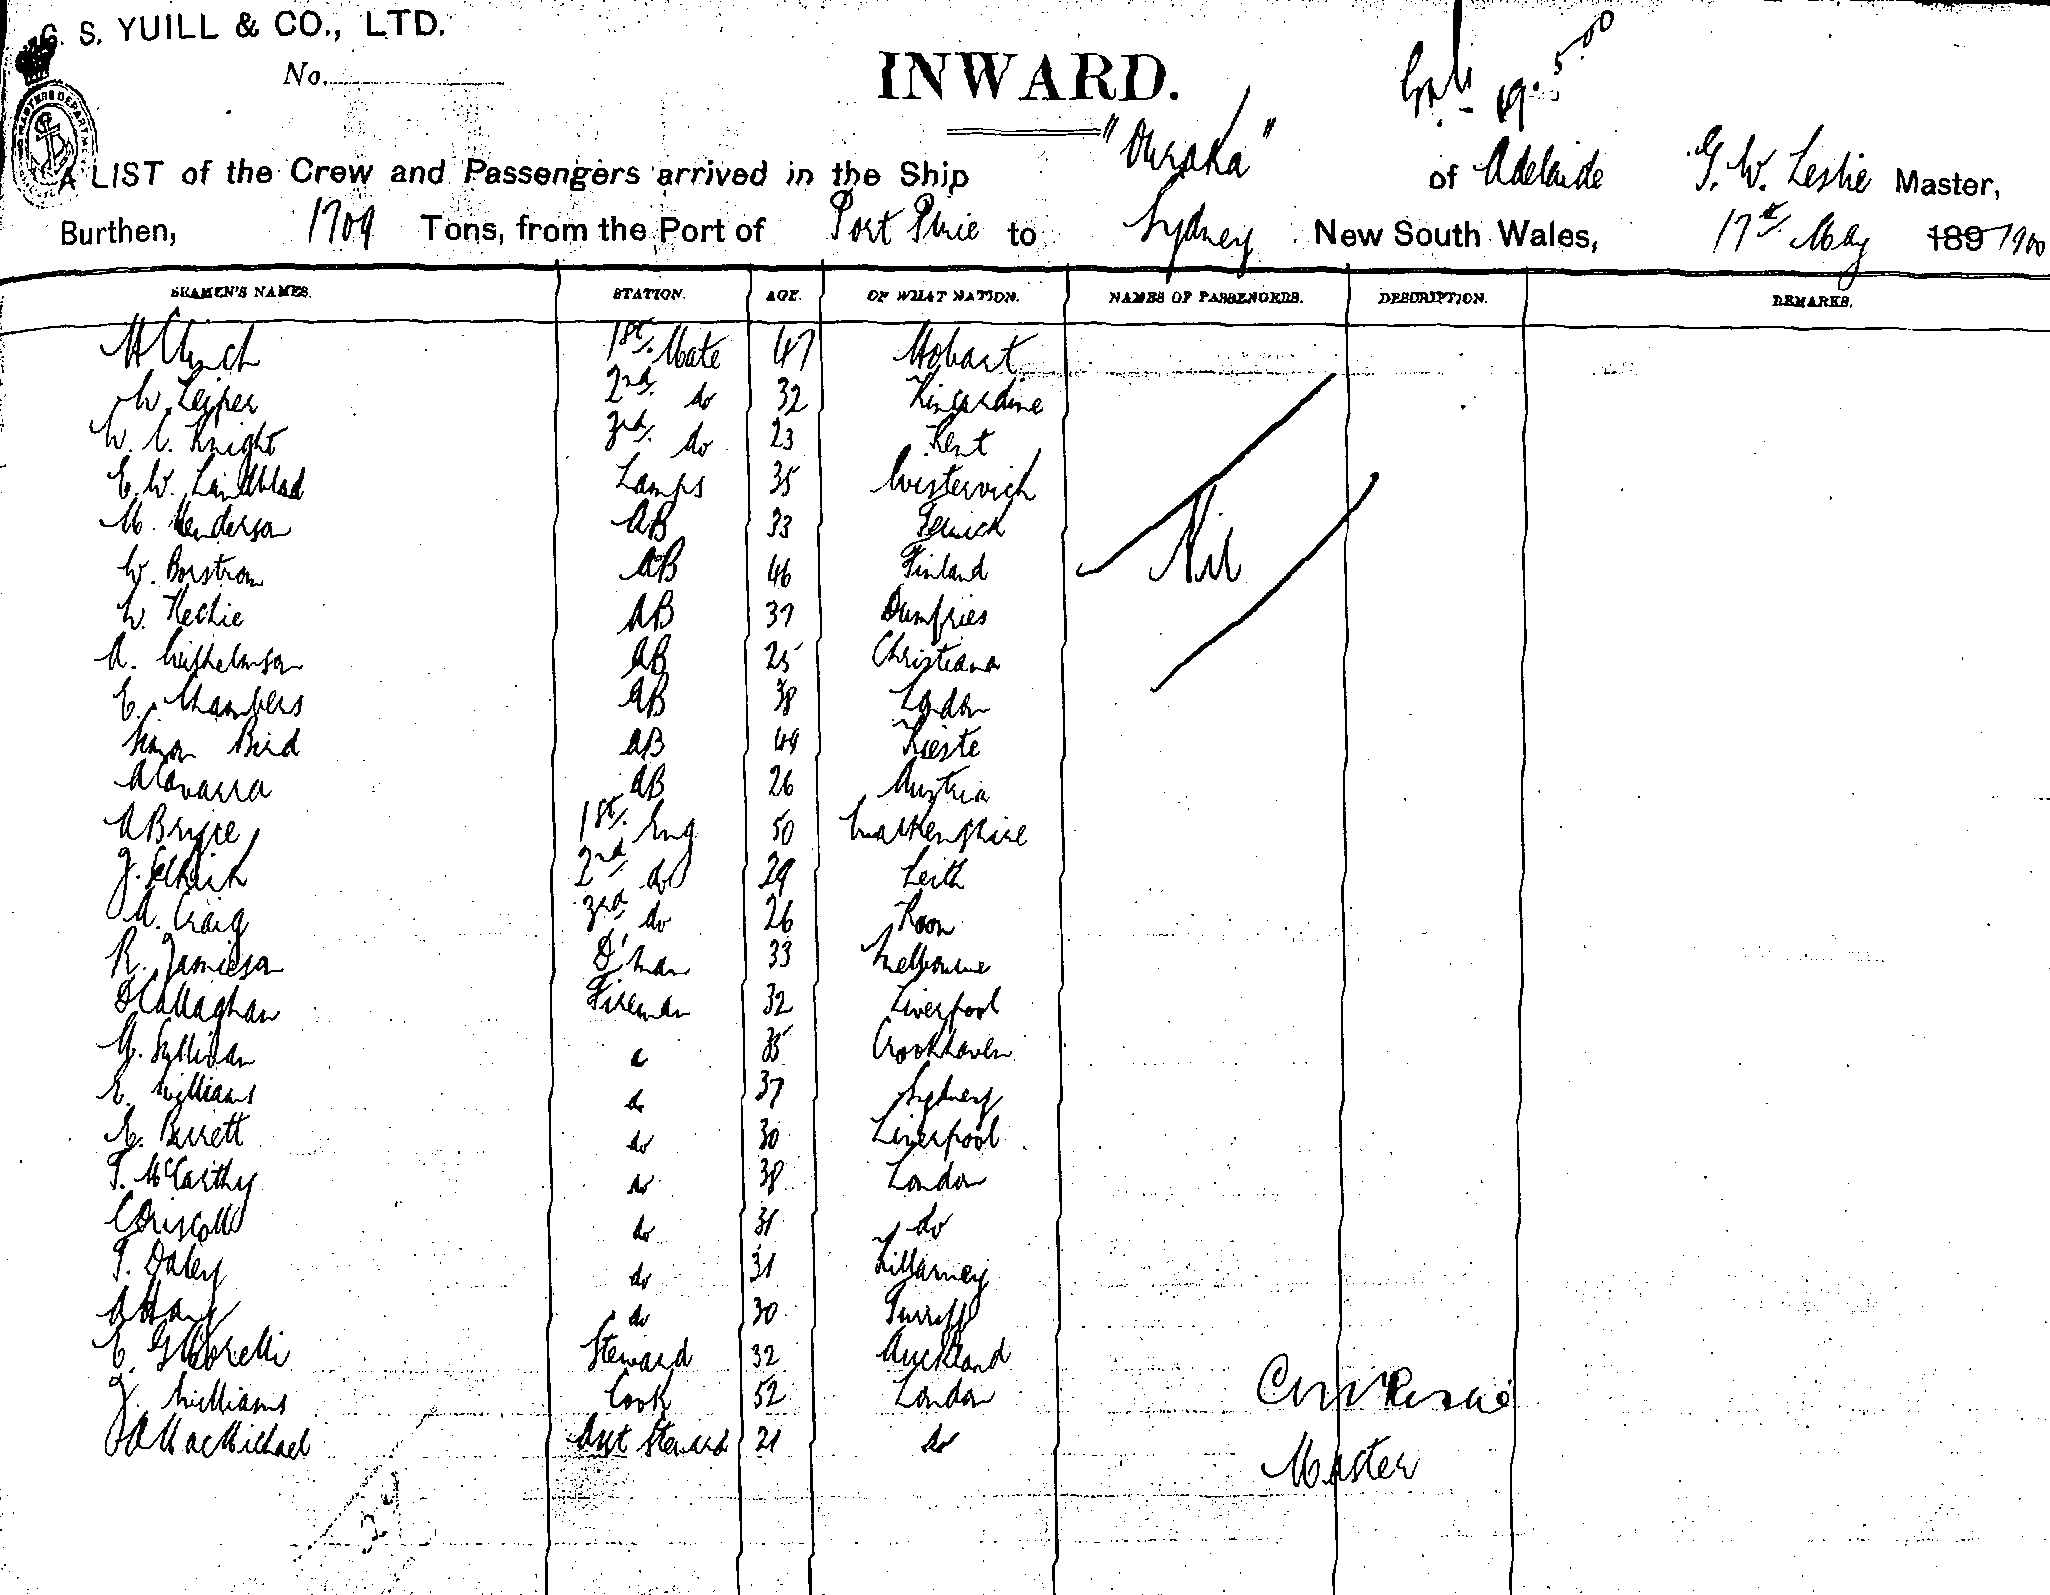 G. S. YUILL & CO., LTD.
No.
INWARD.
19.5.00
A LIST of the Crew and Passengers arrived in the Ship "Ouraka" of Adelaide G. W. Leslie Master,
Burthen, 1709 Tons, from the Port of Port Pirie to Sydney New South Wales, 17th May 1897 1900
SEAMEN'S NAMES. STATION. AGE. OF WHAT NATION. NAMES OF PASSENGERS. DESCRIPTION. REMARKS.
H Clinch 1st. Mate 47 Hobart
W. Leiper 2nd. do 32 Kincardine
W. C. Knight 3rd. do 23 Kent
E. W. Lindblad Lamps 35 Westervich
M. Henderson AB 33 Lerwick
W. Borstrom AB 46 Finland Nil
W. Kechie AB 37 Dumfries
A. Wilhelmson AB 25 Christiana
E. Chambers AB 38 London
Simon Bird AB 49 Trieste
A Cavarra AB 26 Austria
A Bryce 1st. Eng 50 Lanarkshire
J. 2nd do 29 Leith
A. Craig 3rd do 26
R. Jamieson D'man 33 Melbourne
O'Callaghan Fireman 32 Liverpool
G. Sullivan 35 Crookhaven
E. Williams do 37 Sydney
E. Barrett do 30 Liverpool
T. McCarthy do 38 London
C Driscoll do 31 do
T. Daley do 31 Killarney
A Hay do 30 Turriff
E. Steward 32 Auckland
J. Williams Cook 52 London
J A MacMichael Asst Steward 21 do
Leslie
Master